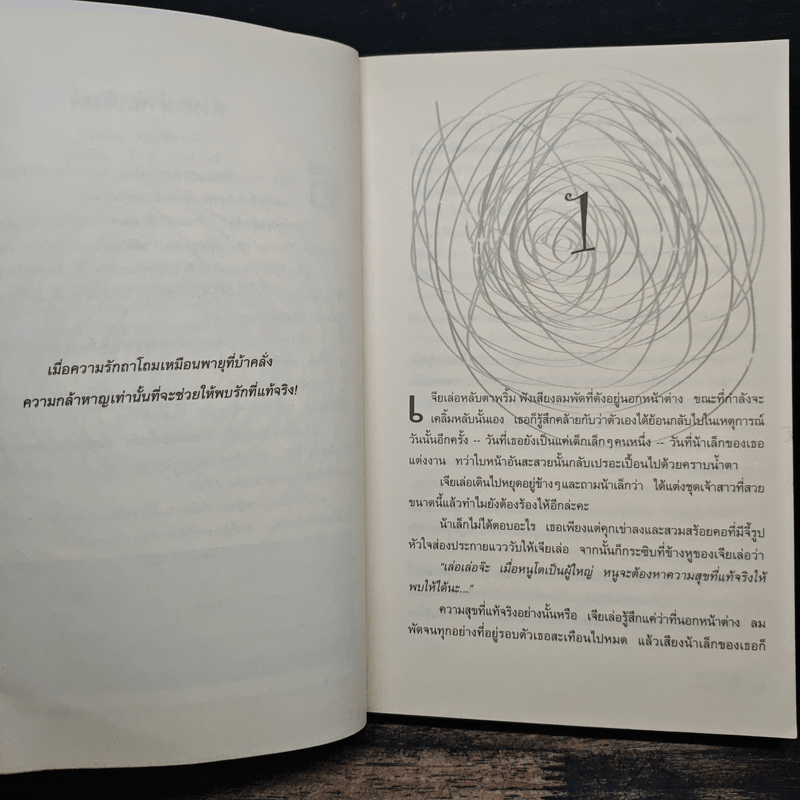 เมื่อความรักถาโถมเหมือนพายุที่บ้าคลั่ง
ความกล้าหาญเท่านั้นที่จะช่วยให้พบรักที่แท้จริง!
1
เจียเล่อหลับตาพริ้ม ฟังเสียงลมพัดที่ดังอยู่นอกหน้าต่าง ขณะที่กำลังจะ
เคลิ้มหลับนั้นเอง เธอก็รู้สึกคล้ายกับว่าตัวเองได้ย้อนกลับไปในเหตุการณ์
วันนั้นอีกครั้ง -- วันที่เธอยังเป็นแค่เด็กเล็กๆคนหนึ่ง -- วันที่น้าเล็กของเธอ
แต่งงาน ทว่าใบหน้าอันสะสวยนั้นกลับเปรอะเปื้อนไปด้วยคราบน้ำตา
เจียเล่อเดินไปหยุดอยู่ข้างๆและถามน้าเล็กว่า ได้แต่งชุดเจ้าสาวที่สวย
ขนาดนี้แล้วทำไมยังต้องร้องไห้อีกล่ะคะ
น้าเล็กไม่ได้ตอบอะไร เธอเพียงแต่คุกเข่าลงและสวมสร้อยคอที่มีจี้รูป
หัวใจส่องประกายแวววับให้เจียเล่อ จากนั้นก็กระซิบที่ข้างหูของเจียเล่อว่า
"เล่อเล่อจ๊ะ เมื่อหนูโตเป็นผู้ใหญ่ หนูจะต้องหาความสุขที่แท้จริงให้
พบให้ได้นะ..."
ความสุขที่แท้จริงอย่างนั้นหรือ เจียเล่อรู้สึกแค่ว่าที่นอกหน้าต่าง ลม
พัดจนทุกอย่างที่อยู่รอบตัวเธอสะเทือนไปหมด แล้วเสียงน้าเล็กของเธอก็